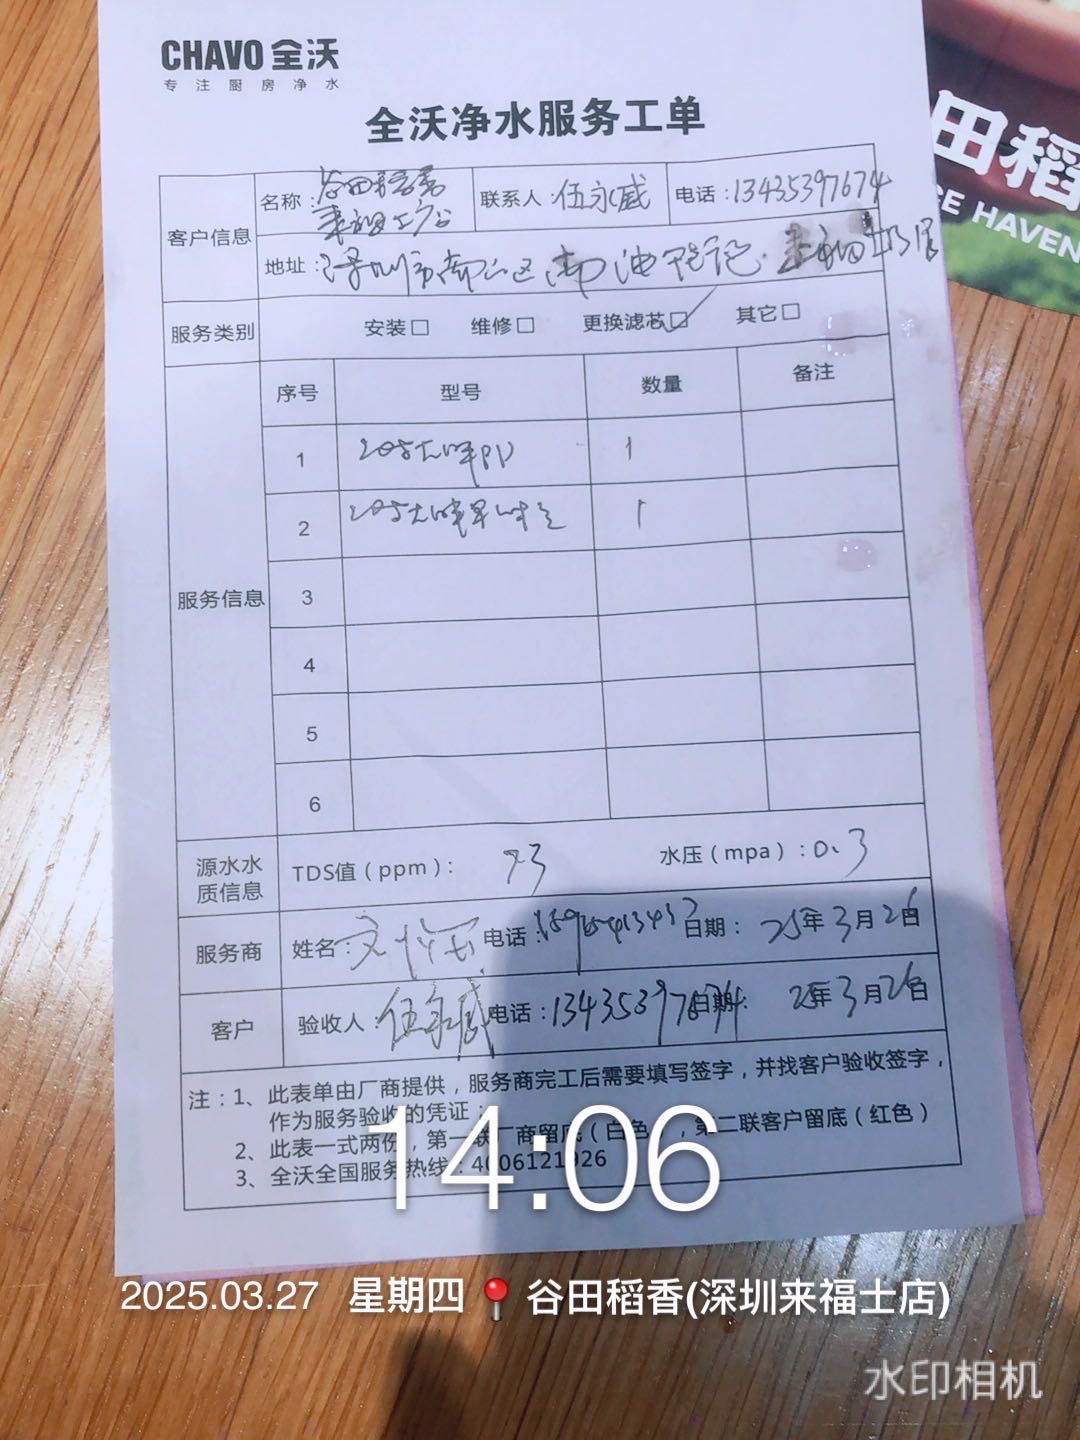 CHAVO 全沃
专注厨房净水
全沃净水服务工单
田稻
CE HAVEN
客户信息 名称： 谷田稻香 联系人：伍永威 电话：13435397674
地址：深圳市南山区南油
服务类别 安装□ 维修□ 更换滤芯☑ 其它□
服务信息 序号 型号 数量 备注
1 PP 1
2 1
3
4
5
6
源水水质信息 TDS值（ppm）： 73 水压（mpa）：0.3
服务商 姓名： 电话： 日期：25年3月26日
客户 验收人：伍永威 电话：13435397674 日期：25年3月26日
注：1、此表单由厂商提供，服务商完工后需要填写签字，并找客户验收签字，
作为服务验收的凭证；
2、此表一式两份，第一联厂商留底（白色），第二联客户留底（红色）
3、全沃全国服务热线：4006121926
14:06
2025.03.27 星期四 谷田稻香(深圳来福士店)
水印相机